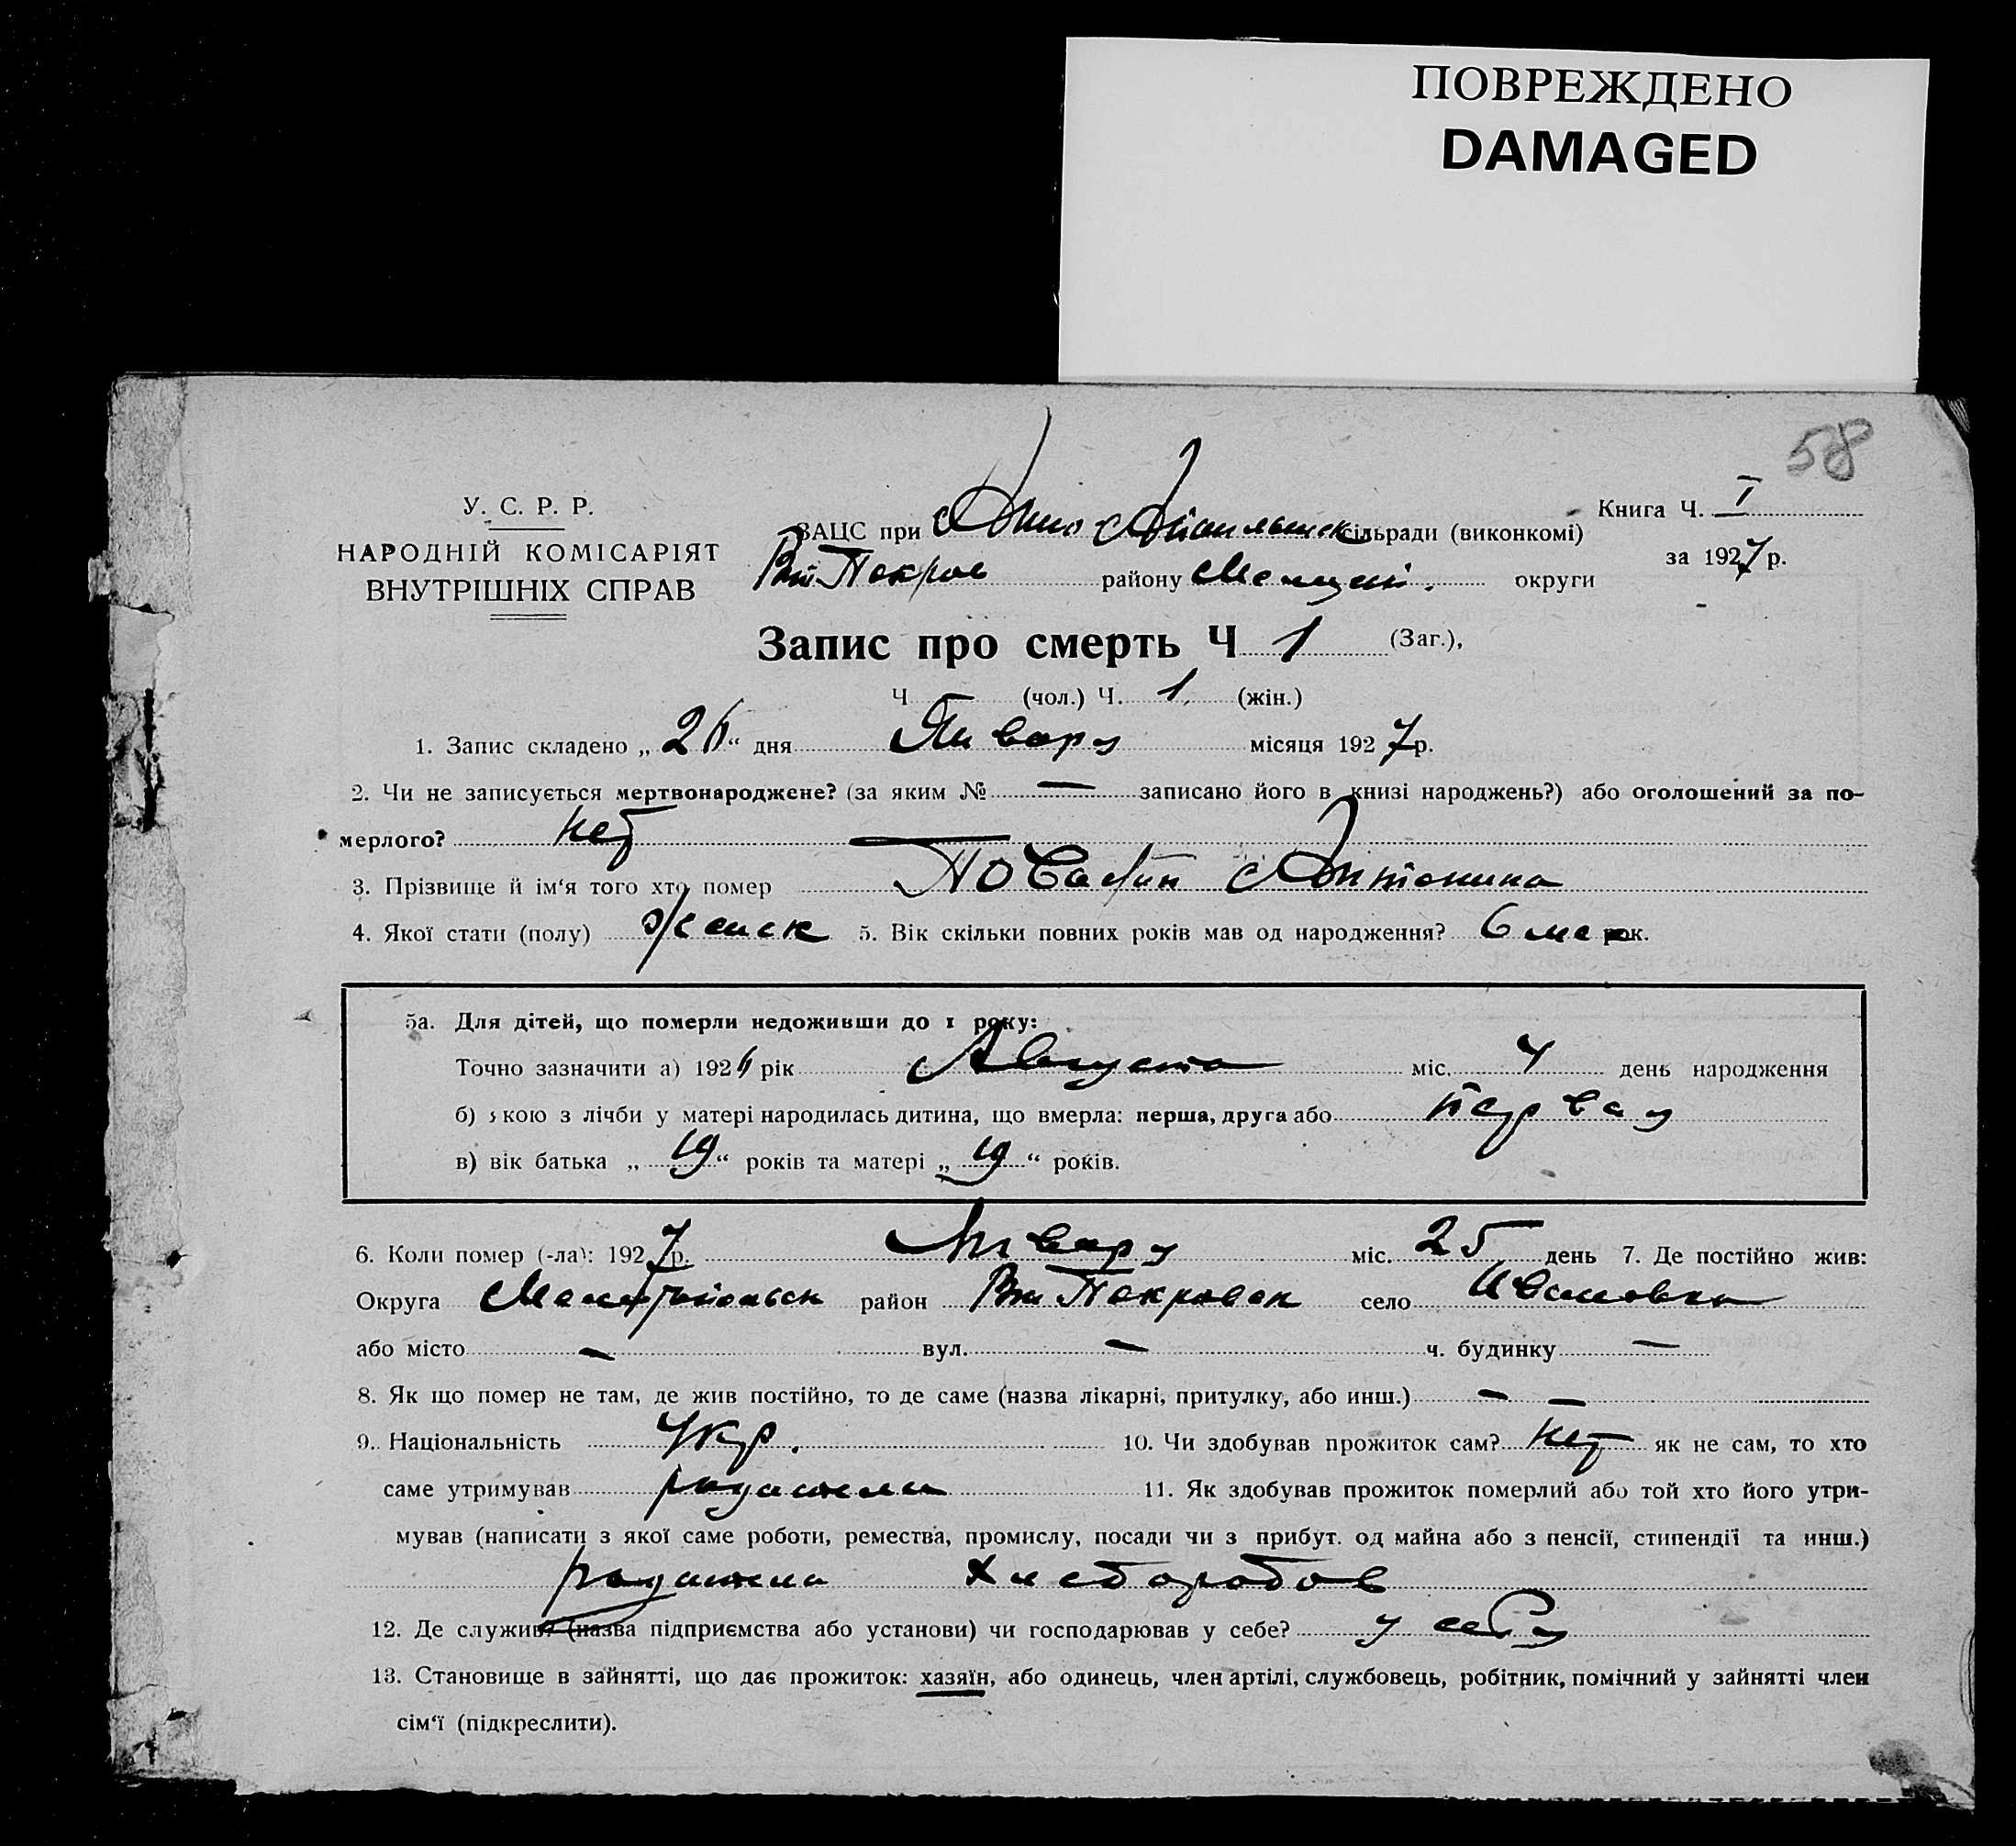 ПОВРЕЖДЕНО
DAMAGED
58
У. С. Р. Р.
НАРОДНІЙ КОМІСАРІЯТ
ВНУТРІШНІХ СПРАВ
ЗАЦС при сільради (виконкомі)
Покров району округи
Книга Ч. I
за 1927 р.
Запис про смерть Ч 1 (Заг.),
Ч — (чол.) Ч. 1 (жін.)
1. Запис складено „ 26 “ дня Января місяця 1927 р.
2. Чи не записується мертвонароджене? (за яким № — записано його в книзі народжень?) або оголошений за по-
мерлого? нет —
3. Прізвище й ім‘я того хто помер Антонина
4. Якої стати (полу) женск 5. Вік скільки повних років мав од народження? 6 мес рок.
5а. Для дітей, що померли недоживши до 1 року:
Точно зазначити а) 1926 рік Августа міс. 4 день народження
б) якою з лічби у матері народилась дитина, що вмерла: перша, друга або первая
в) вік батька „ 19 “ років та матері „ 19 “ років.
6. Коли помер (-ла): 1927 р. Января міс. 25 день 7. Де постійно жив:
Округа район Покровск село Ивановка
або місто — вул. — ч. будинку —
8. Як що помер не там, де жив постійно, то де саме (назва лікарні, притулку, або инш.) — —
9. Національність Укр. 10. Чи здобував прожиток сам? нет як не сам, то хто
саме утримував родители 11. Як здобував прожиток померлий або той хто його утри-
мував (написати з якої саме роботи, ремества, промислу, посади чи з прибут. од майна або з пенсії, стипендії та инш.)
родители Хлеборобов
12. Де служив? (назва підприємства або установи) чи господарював у себе? у себя
13. Становище в зайнятті, що дає прожиток: хазяїн, або одинець, член артілі, службовець, робітник, помічний у зайнятті член
сім‘ї (підкреслити).